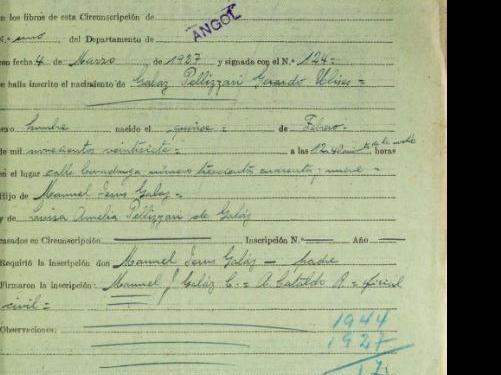 en los libros de esta Circunscripción de
ANGOL
N.º uno del Departamento de
con fecha 4 de Marzo de 1927 y signado con el N.º 124=
se halla inscrito el nacimiento de Galaz Pellizzari Gerardo Ulises =
sexo hombre nacido el quince = de Febrero.
de mil novecientos veintisiete = a las 12.40 de la noche horas
en el lugar calle número trescientos cuarenta i nueve =
Hijo de Manuel Jesus Galaz =
y de Luisa Amelia Pellizzari de Galáz
casados en Circunscripción Inscripción N.º Año
Requirió la inscripción don Manuel Jesus Galáz — padre
Firmaron la inscripción: Manuel J. Galáz C. = A. Cataldo R. = oficial
civil =
Observaciones:
1944
1927
17.